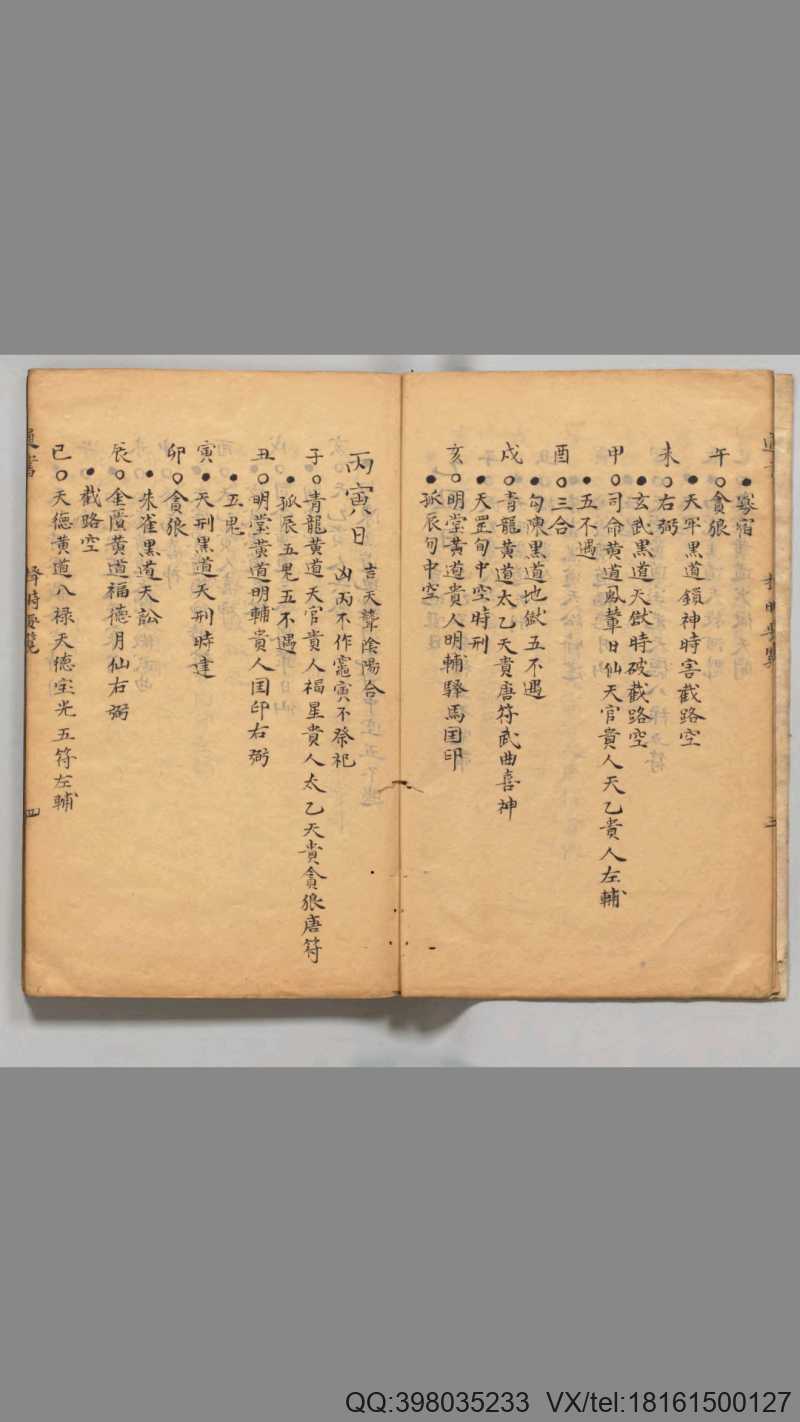 ● 寡宿
午 ○ 貪狼
● 天牢黑道鎖神時害截路空
未 ○ 右弼
● 玄武黑道天獄時破截路空
申 ○ 司命黄道鳳輦日仙天官貴人天乙貴人左輔
● 五不遇
酉 ○ 三合
● 勾陳黑道地獄五不遇
戌 ○ 青龍黄道太乙天貴唐符武曲喜神
● 天罡旬中空時刑
亥 ○ 明堂黄道貴人明輔驛馬囯印
● 孤辰旬中空
三
丙寅日
吉天聾陰陽合
凶丙不作竈寅不祭祀
子 ○ 青龍黄道天官貴人福星貴人太乙天貴貪狼唐符
● 孤辰五鬼五不遇
丑 ○ 明堂黄道明輔貴人囯印右弼
● 五鬼
寅 ● 天刑黑道天刑時建
卯 ○ 貪狼
● 朱雀黑道天訟
辰 ○ 金匱黄道福德月仙右弼
● 截路空
巳 ○ 天德黄道八禄天德宝光五符左輔
擇時要覽
四
QQ:398035233 VX/tel:18161500127